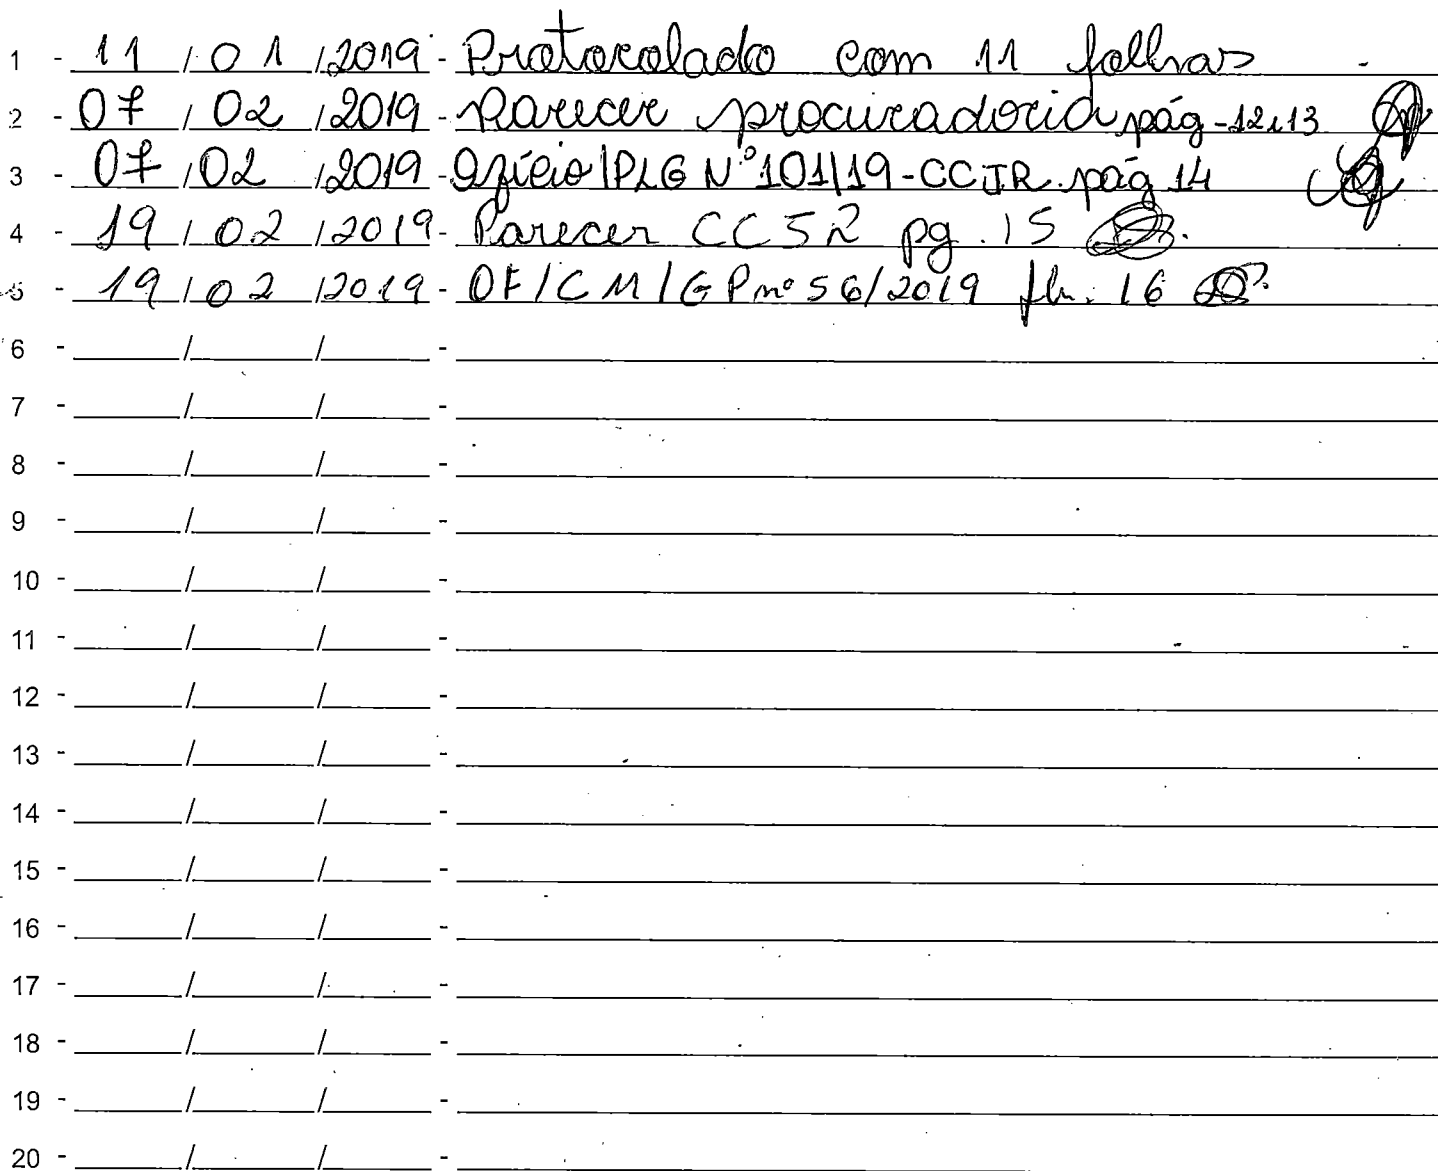 1 - 11 / 01 / 2019 - Protocolado com 11 folhas
2 - 07 / 02 / 2019 - Parecer procuradoria pág - 12 e 13
3 - 07 / 02 / 2019 - Ofício/PLG Nº 101/19 - CCJR pág 14
4 - 19 / 02 / 2019 - Parecer CCJR pg. 15
5 - 19 / 02 / 2019 - OF/CM/GP nº 56/2019 fln. 16
6 - ____/____/____ -
7 - ____/____/____ -
8 - ____/____/____ -
9 - ____/____/____ -
10 - ____/____/____ -
11 - ____/____/____ -
12 - ____/____/____ -
13 - ____/____/____ -
14 - ____/____/____ -
15 - ____/____/____ -
16 - ____/____/____ -
17 - ____/____/____ -
18 - ____/____/____ -
19 - ____/____/____ -
20 - ____/____/____ -